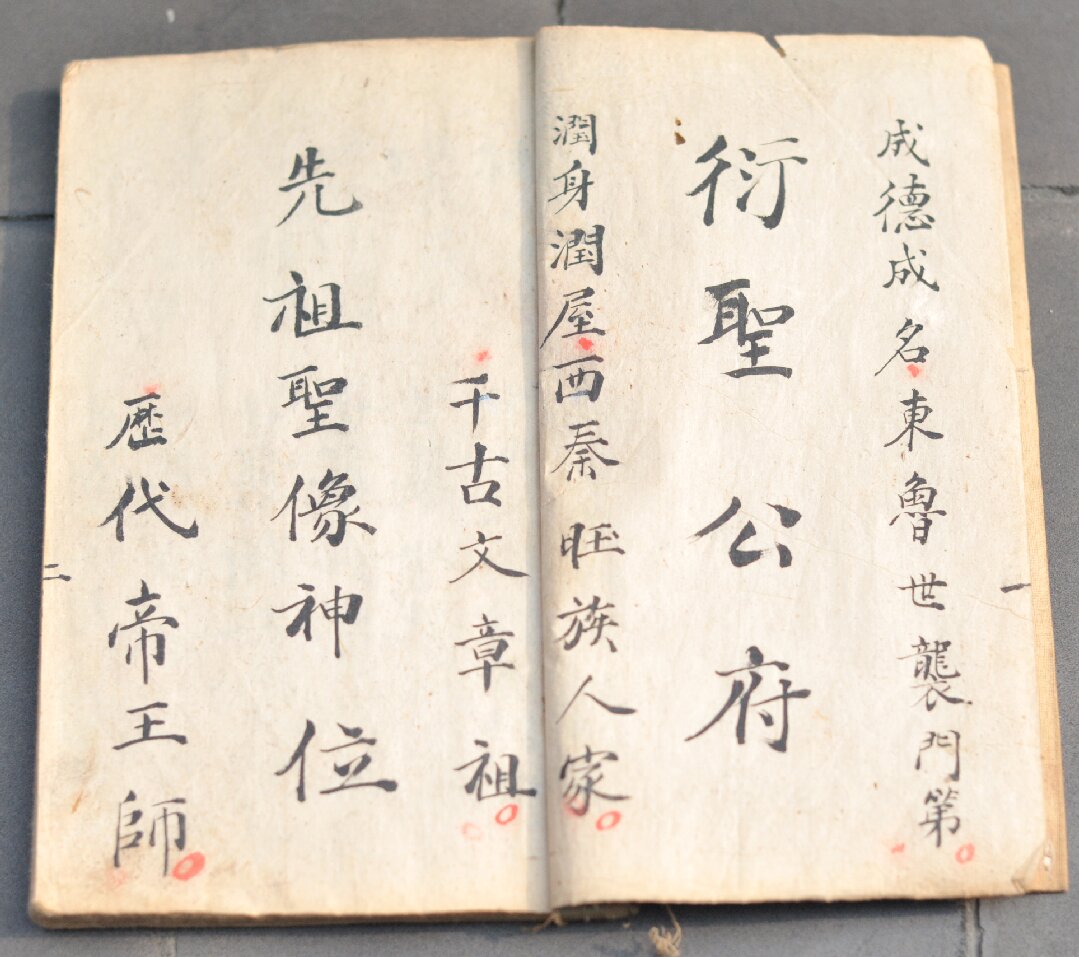 成德成名東魯世襲門第
衍聖公府
潤身潤屋西秦旺族人家
一
千古文章祖
先祖聖像神位
歷代帝王師
二